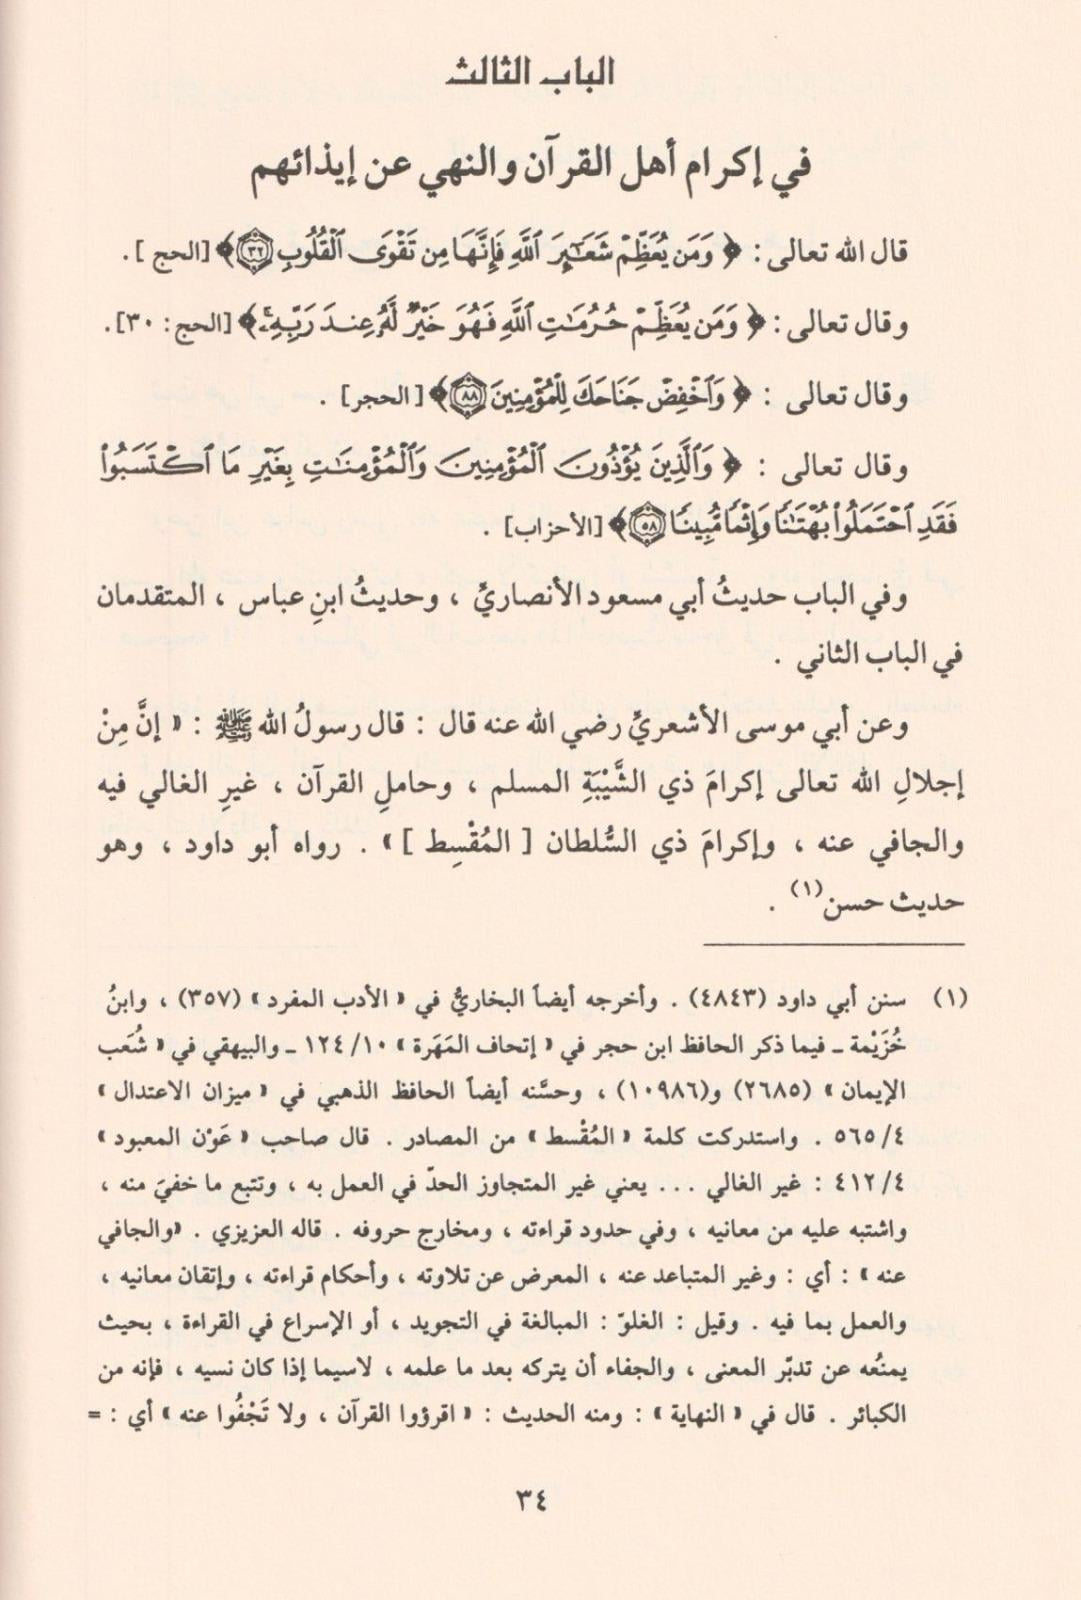 الباب الثالث
في إكرام أهل القرآن والنهي عن إيذائهم
قال الله تعالى : ﴿ وَمَن يُعَظِّمْ شَعَٰٓئِرَ ٱللَّهِ فَإِنَّهَا مِن تَقْوَى ٱلْقُلُوبِ ٣٢﴾ [الحج ] .
وقال تعالى : ﴿ وَمَن يُعَظِّمْ حُرُمَٰتِ ٱللَّهِ فَهُوَ خَيْرٌ لَّهُۥ عِندَ رَبِّهِۦ﴾ [الحج : ٣٠] .
وقال تعالى : ﴿ وَٱخْفِضْ جَنَاحَكَ لِلْمُؤْمِنِينَ ٨٨﴾ [ الحجر] .
وقال تعالى : ﴿ وَٱلَّذِينَ يُؤْذُونَ ٱلْمُؤْمِنِينَ وَٱلْمُؤْمِنَٰتِ بِغَيْرِ مَا ٱكْتَسَبُوا۟
فَقَدِ ٱحْتَمَلُوا۟ بُهْتَٰنًا وَإِثْمًا مُّبِينًا ٥٨﴾ [الأحزاب] .
وفي الباب حديثُ أبي مسعود الأنصاريِّ ، وحديثُ ابنِ عباس ، المتقدمان
في الباب الثاني .
وعن أبي موسى الأشعريِّ رضي الله عنه قال : قال رسولُ الله ﷺ : « إنَّ مِنْ
إجلالِ الله تعالى إكرامَ ذي الشَّيْبَةِ المسلم ، وحاملِ القرآن ، غيرِ الغالي فيه
والجافي عنه ، وإكرامَ ذي السُّلطان [ المُقْسِط ] » . رواه أبو داود ، وهو
حديث حسن(١) .
(١) سنن أبي داود (٤٨٤٣) . وأخرجه أيضاً البخاريُّ في « الأدب المفرد » (٣٥٧) ، وابنُ
خُزَيْمة ـ فيما ذكر الحافظ ابن حجر في « إتحاف المَهَرة » ١٢٤/١٠ ـ والبيهقي في « شُعَب
الإيمان » (٢٦٨٥) و(١٠٩٨٦) ، وحسَّنه أيضاً الحافظ الذهبي في « ميزان الاعتدال »
٥٦٥/٤ . واستدركت كلمة « المُقْسط » من المصادر . قال صاحب « عَوْن المعبود »
٤١٢/٤ : غير الغالي ... يعني غير المتجاوز الحدّ في العمل به ، وتتبع ما خفيَ منه ،
واشتبه عليه من معانيه ، وفي حدود قراءته ، ومخارج حروفه . قاله العزيزي . «والجافي
عنه » : أي : وغير المتباعد عنه ، المعرض عن تلاوته ، وأحكام قراءته ، وإتقان معانيه ،
والعمل بما فيه . وقيل : الغلوّ : المبالغة في التجويد ، أو الإسراع في القراءة ، بحيث
يمنعُه عن تدبّر المعنى ، والجفاء أن يتركه بعد ما علمه ، لاسيما إذا كان نسيه ، فإنه من
الكبائر . قال في « النهاية » : ومنه الحديث : « اقرؤوا القرآن ، ولا تَجْفُوا عنه » أي : =
٣٤